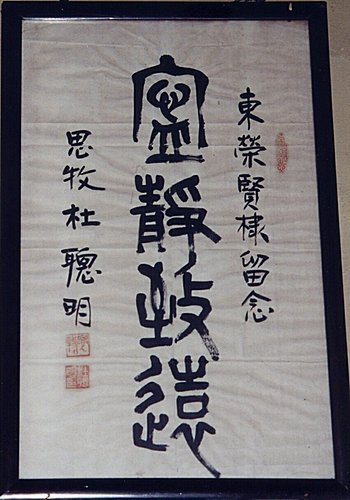 東榮賢棣留念
寧靜致遠
思牧杜聰明